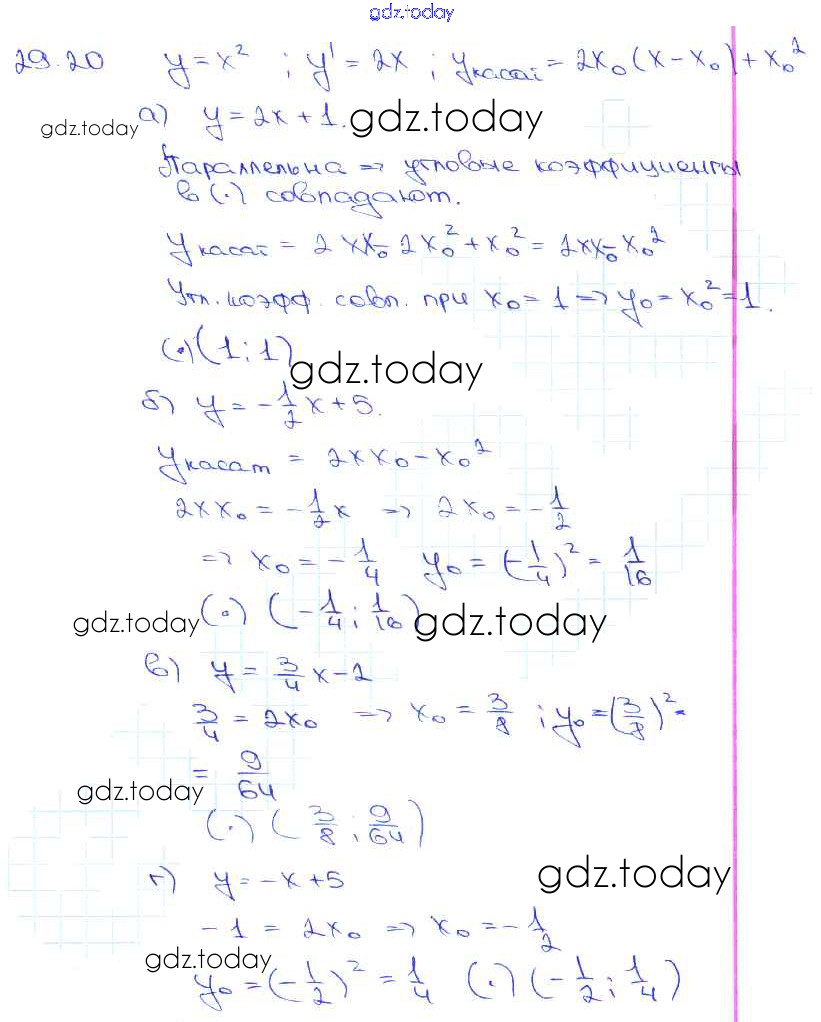 gdz.today
29.20 y = x² ; y' = 2x ; yкасат = 2x₀(x – x₀) + x₀²
а) y = 2x + 1. gdz.today
gdz.today
Параллельна => угловые коэффициенты
в (·) совпадают.
yкасат = 2xx₀ – 2x₀² + x₀² = 2xx₀ – x₀²
Угл. коэфф. совп. при x₀ = 1 => y₀ = x₀² = 1.
(·) (1; 1)
gdz.today
б) y = -1/2 x + 5.
yкасат = 2xx₀ – x₀²
2xx₀ = -1/2 x => 2x₀ = -1/2
=> x₀ = -1/4 y₀ = (-1/4)² = 1/16
(·) (-1/4; 1/16)
gdz.today gdz.today
в) y = 3/4 x – 2
3/4 = 2x₀ => x₀ = 3/8 ; y₀ = (3/8)² =
= 9/64
gdz.today
(·) (3/8; 9/64)
г) y = -x + 5 gdz.today
-1 = 2x₀ => x₀ = -1/2
gdz.today
y₀ = (-1/2)² = 1/4 (·) (-1/2; 1/4)